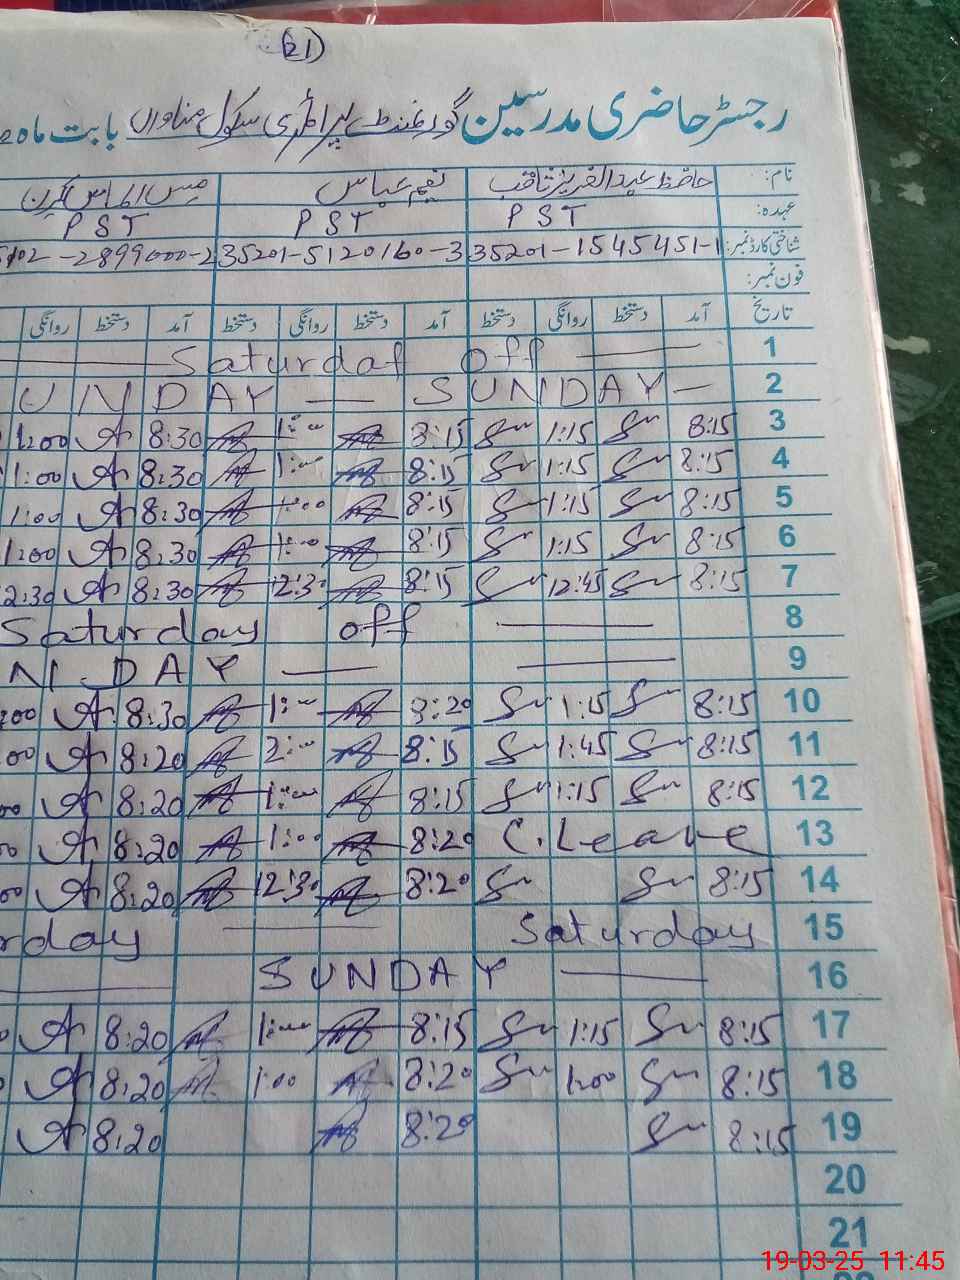 (21)
رجسٹر حاضری مدرسین گورنمنٹ پرائمری سکول مناواں بابت ماہ
نام: حافظ عبدالعزیز ثاقب نعیم عباس مس
عہدہ: PST PST PST
شناختی کارڈ نمبر: 35201-1545451-1 35201-5120160-3 -2899000-2
فون نمبر:
تاریخ آمد دستخط روانگی دستخط آمد دستخط روانگی دستخط آمد دستخط روانگی
1 Saturday off
2 SUNDAY — UNDAY —
3 8:15 1:15 8:15 1:00 8:30 1:00
4 8:15 1:15 8:15 1:00 8:30 1:00
5 8:15 1:15 8:15 1:00 8:30 1:00
6 8:15 1:15 8:15 1:00 8:30 1:00
7 8:15 12:45 8:15 12:30 8:30 2:30
8 Saturday off
9 N DAY
10 8:15 1:15 8:20 1:00 8:30 :00
11 8:15 1:45 8:15 2:00 8:20 00
12 8:15 1:15 8:15 1:00 8:20 00
13 C. Leave 8:20 1:00 8:20 00
14 8:15 8:20 12:30 8:20 00
15 Saturday rday
16 SUNDAY
17 8:15 1:15 8:15 1:00 8:20 0
18 8:15 1:00 8:20 1:00 8:20
19 8:15 8:20 8:20
20
21
19-03-25 11:45